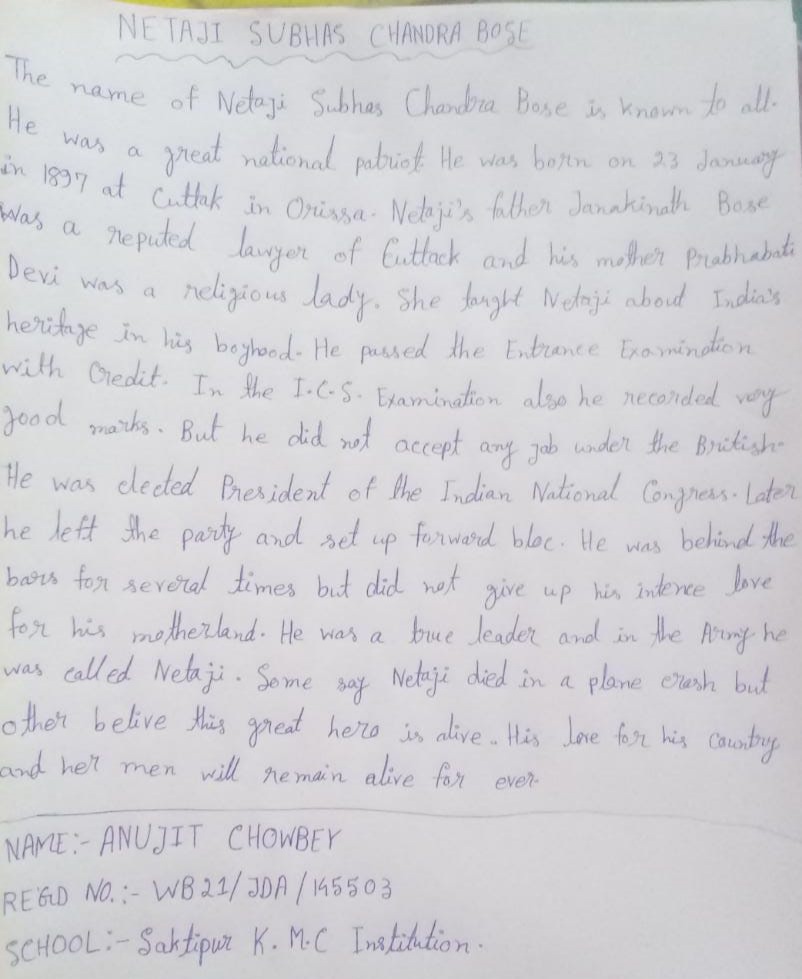 NETAJI SUBHAS CHANDRA BOSE
The name of Netaji Subhas Chandra Bose is known to all.
He was a great national patriot. He was born on 23 January
in 1897 at Cuttak in Orissa. Netaji's father Janakinath Bose
Was a reputed lawyer of Cuttack and his mother Prabhabati
Devi was a religious lady. She taught Netaji about India's
heritage in his boyhood. He passed the Entrance Examination
with Credit. In the I.C.S. Examination also he recorded very
good marks. But he did not accept any job under the British.
He was elected President of the Indian National Congress. Later
he left the party and set up forward bloc. He was behind the
bars for several times but did not give up his intence love
for his motherland. He was a true leader and in the Army he
was called Netaji. Some say Netaji died in a plane crash but
other belive this great hero is alive. His love for his Country
and her men will remain alive for ever.
NAME:- ANUJIT CHOWBEY
REGD NO.:- WB21/JDA/145503
SCHOOL:- Saktipur K.M.C Institution.